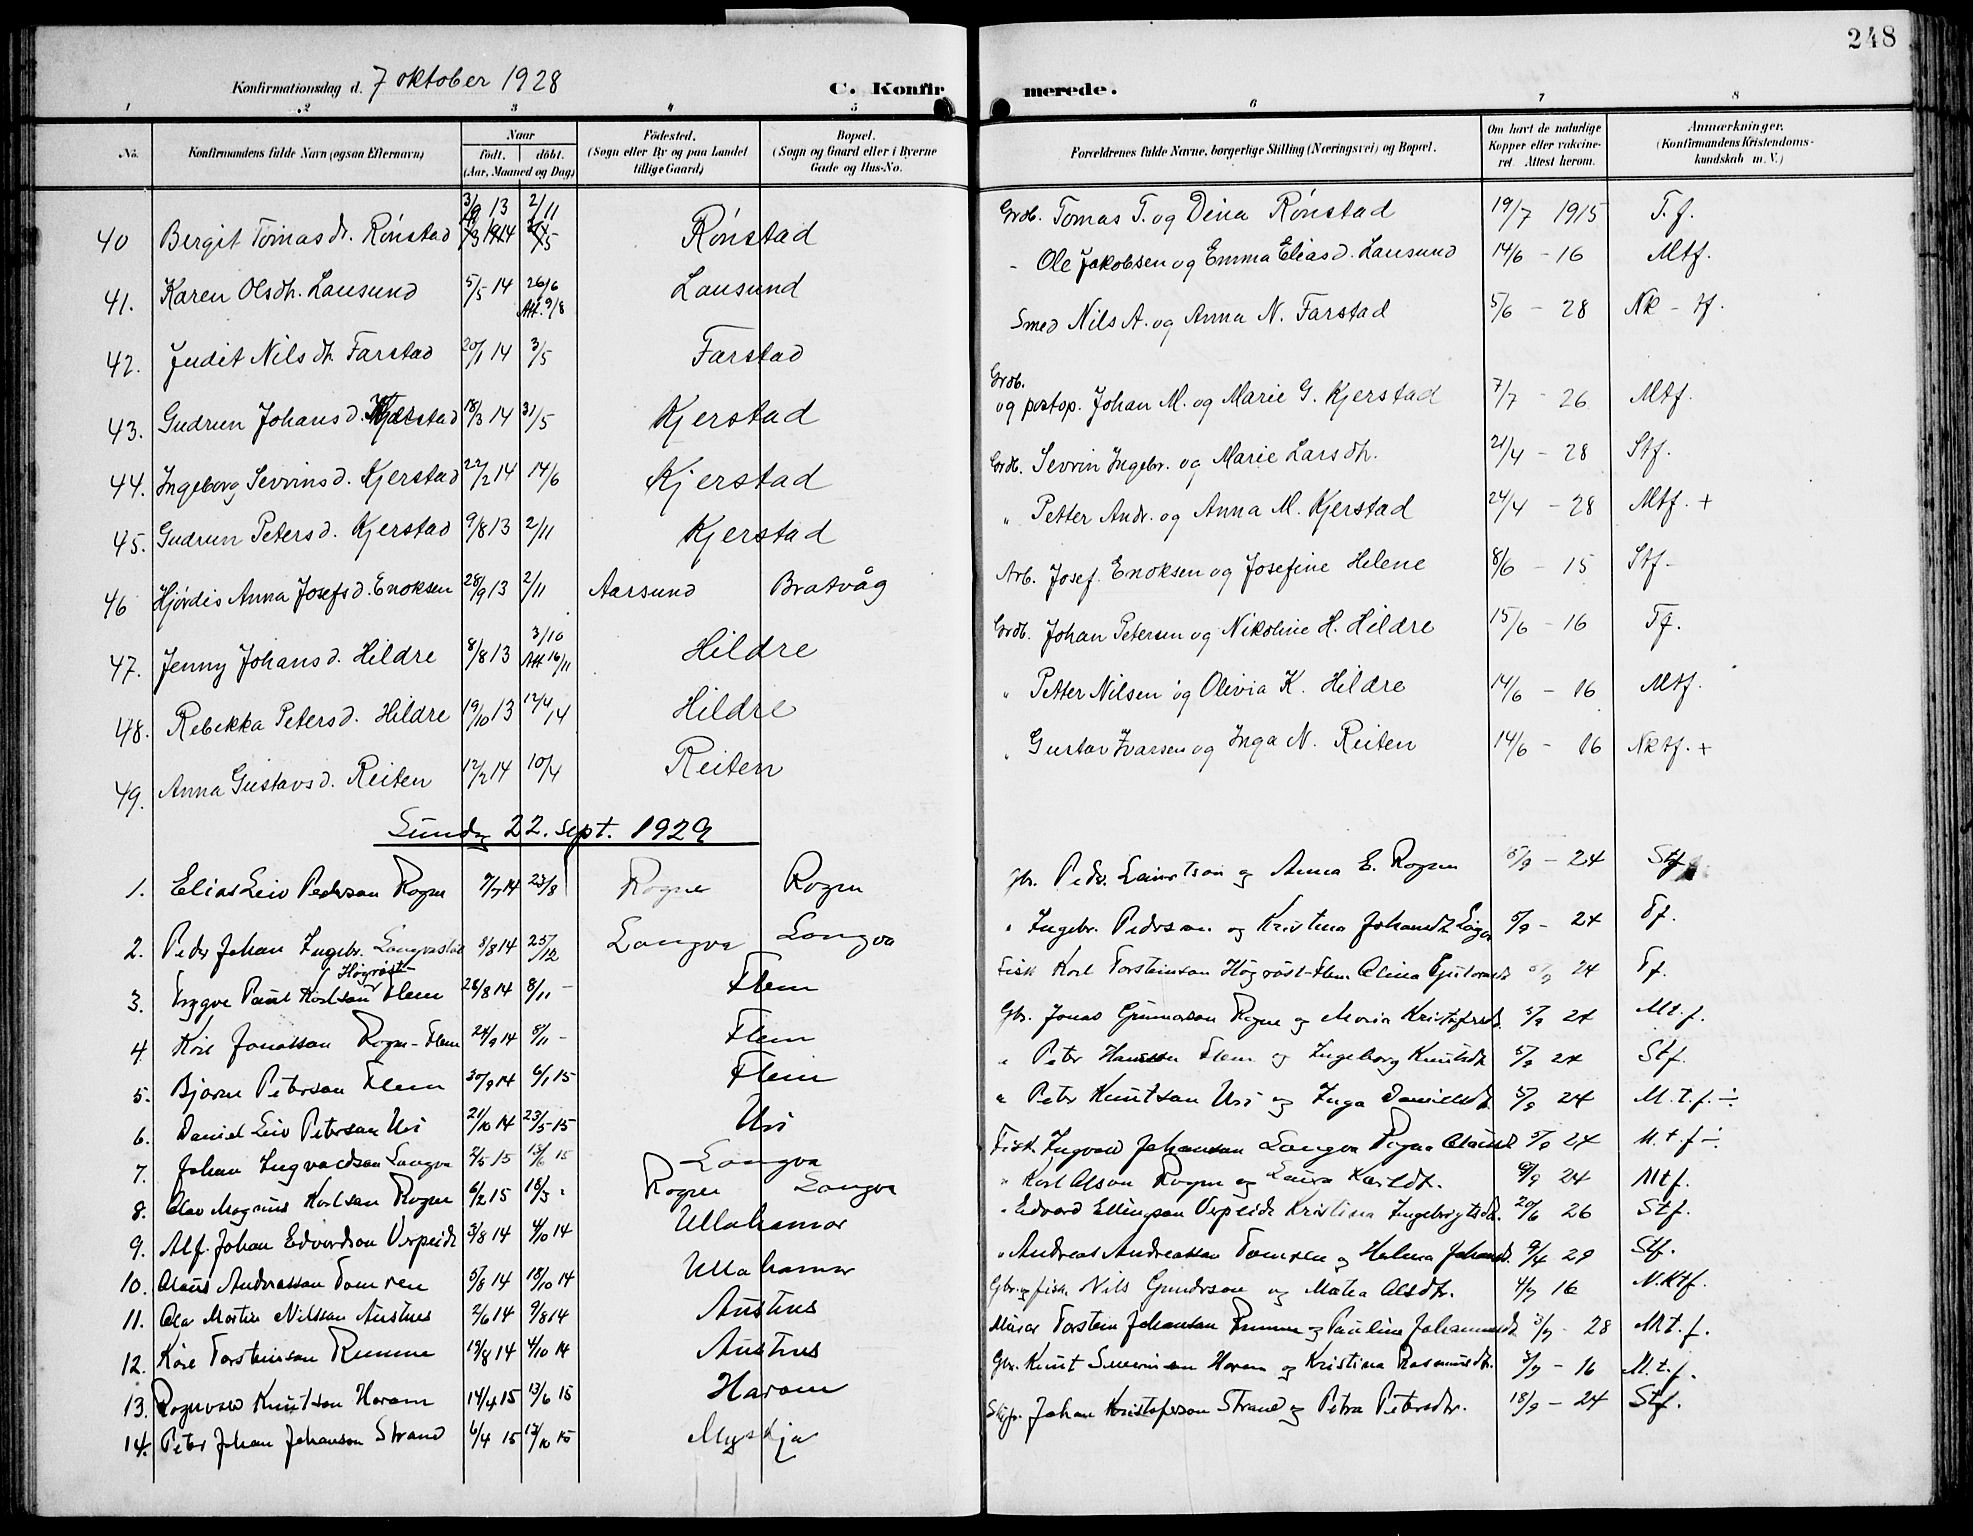 248
Konfirmationsdag d. 7 oktober 1928 C. Konfirmerede.
1 2 3 4 5 6 7 8
No. Konfirmandens fulde Navn (ogsaa Efternavn) Naar født. døbt. (Aar, Maaned og Dag) Fødested. (Sogn eller By og paa Landet tillige Gaard) Bopæl. (Sogn og Gaard eller i Byerne Gade og Hus-No. Forældrenes fulde Navne, borgerlige Stilling (Næringsvei) og Bopæl. Om havt de naturlige Kopper eller vakcineret. Attest herom. Anmærkninger. (Konfirmandens Kristendomskundskab m. V.)
40 Bergit Tomas dr. Rönstad 3/9 13 2/11 Rönstad Grdb. Tomas T. og Dina Rönstad 19/7 1915 T. f.
41. Karen Olsdtr. Lausund 5/5 14 26/6 Att. 9/8 Lausund - Ole Jakobsen og Emma Elias d. Lausund 14/6 - 16 Mtf.
42. Judit Nils dtr. Farstad 20/1 14 3/5 Farstad Smed Nils A. og Anna N. Farstad 5/6 - 28 Nk - tf.
43. Gudrun Johans d. Kjerstad 18/3 14 31/5 Kjerstad Grdb. og postop. Johan M. og Marie G. Kjerstad 7/7 - 26 Mtf.
44. Ingeborg Sevrins d. Kjerstad 22/2 14 14/6 Kjerstad Grdb. Sevrin Ingebr. og Marie Lars dtr. 21/4 - 28 Stf.
45. Gudrun Peters d. Kjerstad 9/8 13 2/11 Kjerstad " Petter Andr. og Anna M. Kjerstad 24/4 - 28 Mtf. +
46 Hjördis Anna Josefs d. Enoksen 28/9 13 2/11 Aarsund Bratvåg Arb. Josef Enoksen og Josefine Helene 8/6 - 15 Stf.
47. Jenny Johans d. Hildre 8/8 13 3/10 Att 16/11 Hildre Grdb. Johan Petersen og Nikoline H. Hildre 15/6 - 16 Tf.
48. Rebekka Peters d. Hildre 19/10 13 12/4 14 Hildre " Petter Nilsen og Olivia K. Hildre 14/6 - 16 Mtf.
49. Anna Gustavs d. Reiten 12/2 14 10/4 Reiten " Gustav Ivarsen og Inga N. Reiten 14/6 - 16 Nktf. +
Sundag 22. sept. 1929
1. Elias Leiv Pederson Rogne 9/7 14 23/8 Rogne Rogne Gbr. Peder Lauritson og Anna E. Rogne 5/9 - 24 Stf
2. Peder Johan Ingebr. Longva 8/8 14 25/12 Longva Longva " Ingebr. Pederson og Kristina Johansdtr 5/9 - 24 Tf.
3. Trygve Paul Karlson Högröst- Flem 28/8 14 8/11 - Flem Fisk Karl Torsteinson Högröst-Flem Olina 24 Tf.
4. Kåre Jonasson Rogne-Flem 24/9 14 8/11 - Flem Gbr. Jonas Gunnarson Rogne og Maria Kristofersdtr. 5/9 24 Mt.f.
5. Bjarne Peterson Flem 30/9 14 6/1 15 Flem " Peter Hansson Flem og Ingeborg Knutsdtr 5/9 24 Stf.
6. Daniel Leiv Peterson Uri 21/10 14 23/5-15 Uri " Peter Knutson Uri og Inga Danielsdtr 5/9 24 M.t.f. ÷
7. Johan Ingvaldson Longva 2/5 15 13/6 15 Longva Fisk. Ingvald Johanson Longva 5/9 24 M.t.f ÷
8. Olav Magnus Karlson Rogne 6/2 15 18/5 " Rogne Longva " Karl Olson Rogne og Laura Karlsdtr. 9/9 24 Mtf.
9. Alf Johan Edvardson Urpeide 3/8 14 4/10 14 Ullahamar " Edvard Ellingson Urpeide Kristina Ingebrigtsdtr. 20/6 26 Stf.
10. Olaus Andreasson Tomren 5/8 14 18/10 14 Ullahamar " Andreas Andreasson Tomren og Halma Johansd. 9/4 29 Stf.
11. Ola Martin Nilsson Austnes 2/6 14 9/8 14 Austnes Gbr. og fisk. Nils Gunderson og Matea Olsdtr. 4/7 16 N.Ktf.
12. Kåre Torsteinson Remme 19/8 14 4/10 14 Austnes Murar Torstein Johanson Remme og Pauline Johannesdtr 3/7 - 28 Mt.f.
13. Rognvald Knutson Haram 14/4 15 13/6 15 Haram Gbr. Knut Severinson Haram og Kristina Rasmusdtr. 3/7 - 16 M.t.f.
14. Peter Johan Johanson Strand 6/4 15 17/10 15 Myskja Johan Kristoferson Strand og Petra Petersdtr. 18/9 - 24 Stf.